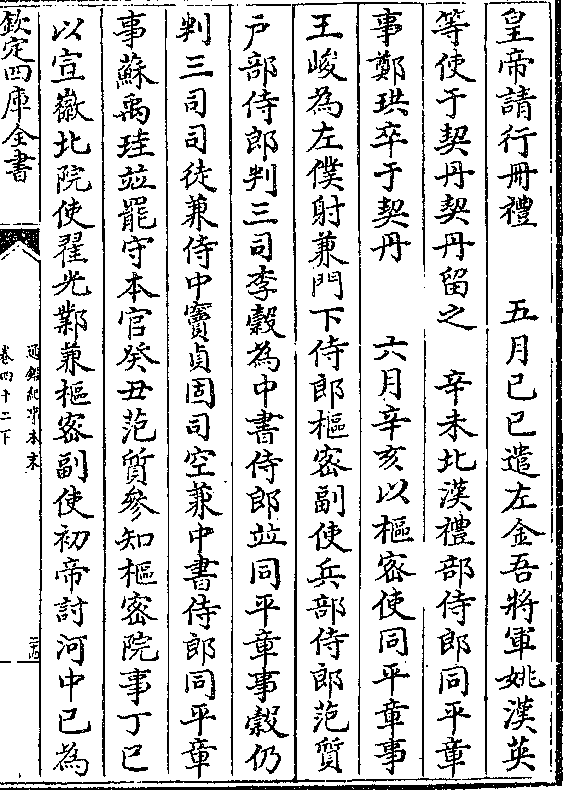 皇帝請行冊禮　五月己巳遣左金吾將軍姚漢英
等使于契丹契丹留之　辛未北漢禮部侍郎同平章
事鄭珙卒于契丹　六月辛亥以樞密使同平章事
王峻為左僕射兼門下侍郎樞密副使兵部侍郎范質
戶部侍郎判三司李穀為中書侍郎並同平章事穀仍
判三司司徒兼侍中竇貞固司空兼中書侍郎同平章
事蘇禹珪並罷守本官癸丑范質參知樞密院事丁巳
以宣徽北院使翟光鄴兼樞密副使初帝討河中已為
欽定四庫全書
通鑑紀事本末
卷四十二下